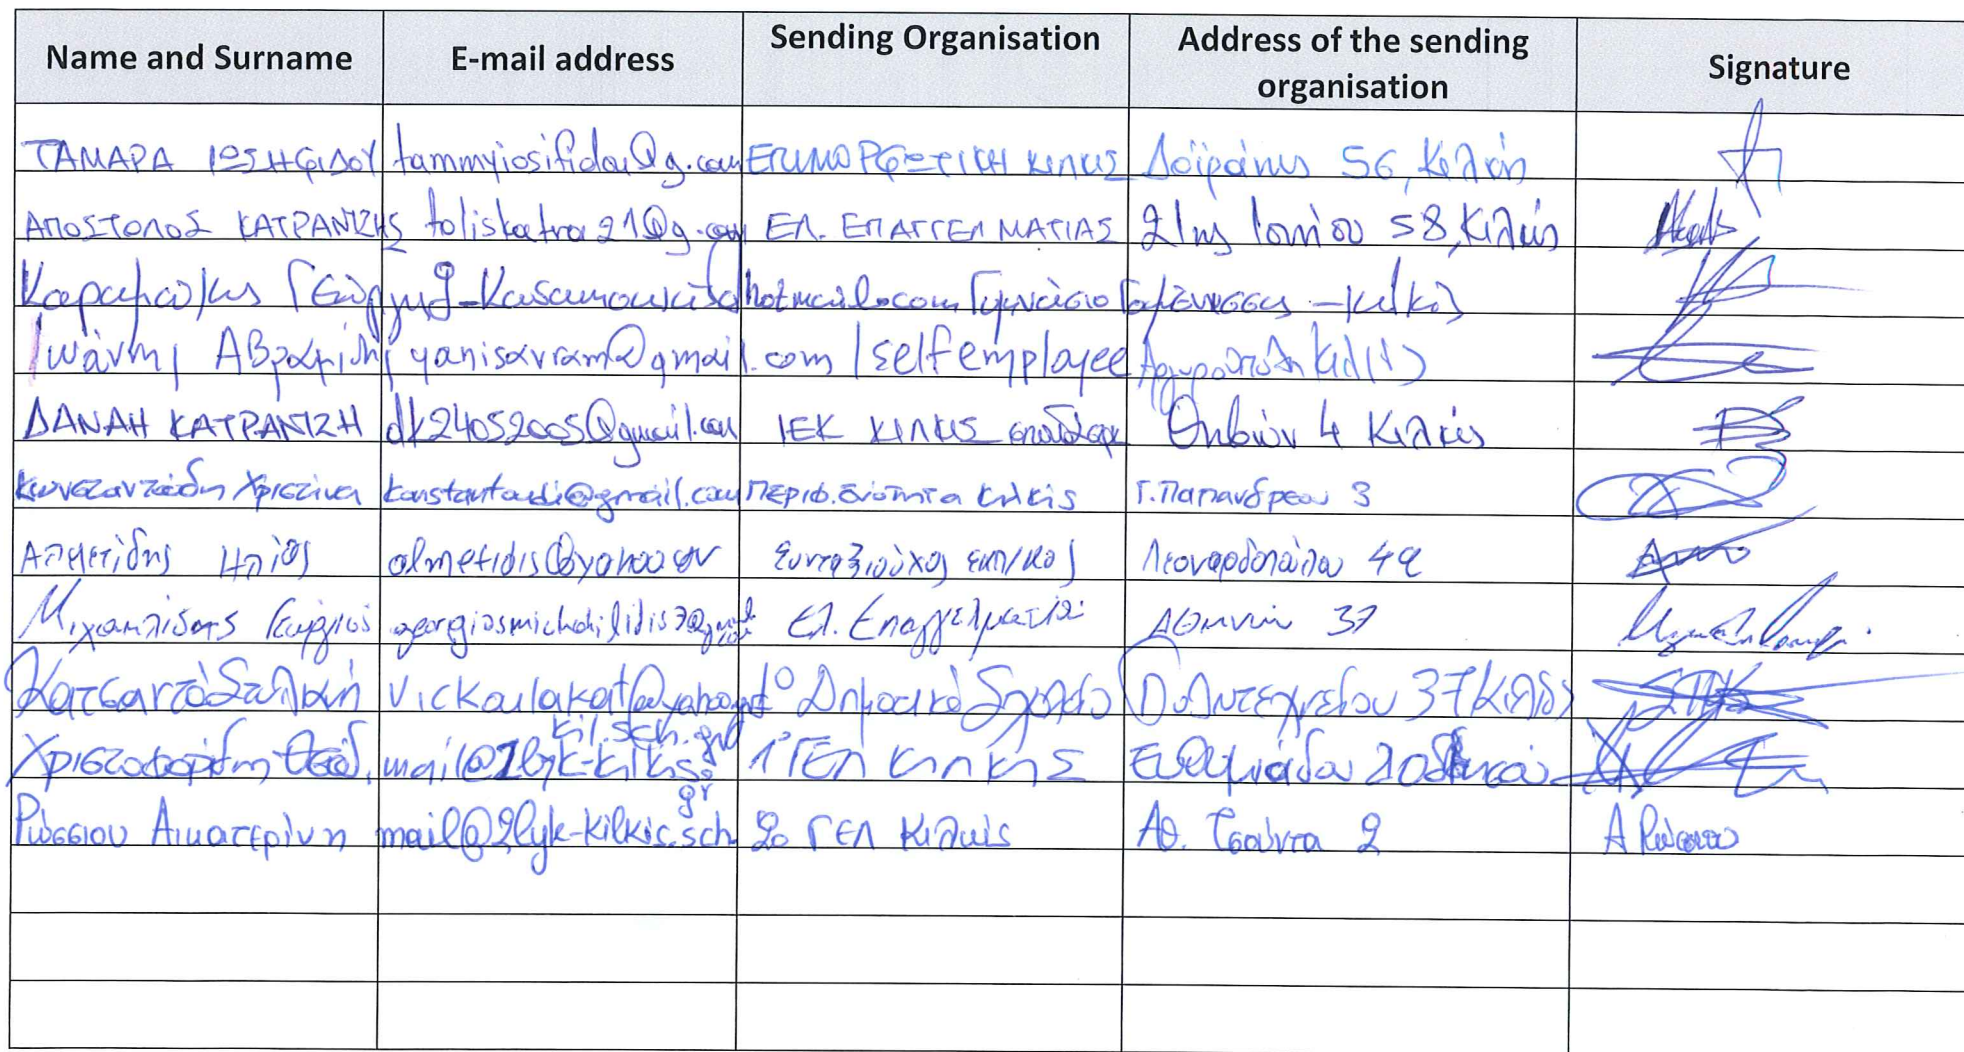 Name and Surname E-mail address Sending Organisation Address of the sending organisation Signature
ΤΑΜΑΡΑ ΙΩΣΗΦΙΔΟΥ tammyiosifidou@g.com ΕΠΙΜΟΡΦΩΤΙΚΗ ΚΙΛΚΙΣ Δοϊράνης 56, Κιλκίς
ΑΠΟΣΤΟΛΟΣ ΚΑΤΡΑΝΤΖΗΣ toliskatra21@g.com ΕΛ. ΕΠΑΓΓΕΛΜΑΤΙΑΣ 21ης Ιουνίου 58, Κιλκίς
Γεώργιος hotmail.com Γυμνάσιο Γουμένισσας - Κιλκίς
Ιωάννης Αβραμίδης yanisavram@gmail.com / self employee Αργυρούπολη Κιλκίς
ΔΑΝΑΗ ΚΑΤΡΑΝΤΖΗ dk24052005@gmail.com ΙΕΚ ΚΙΛΚΙΣ Θηβών 4 Κιλκίς
Κωνσταντιάδη Χριστίνα Περιφ. Ενότητα Κιλκίς Γ. Παπανδρέου 3
Αλμετίδης Ηλίας almetidis@yahoo.gr Συνταξιούχος εκπ/κος 4
Μιχαηλίδης Γεώργιος Ελ. Επαγγελματίας Αθηνών 37
1ο Δημοτικό Σχολείο Πολυτεχνείου 37 Κιλκίς
Χριστοφορίδης Θεόδ. mail@1lyk-kilkis.kil.sch.gr 1ο ΓΕΛ ΚΙΛΚΙΣ
Ρώσσιου Αικατερίνη mail@2lyk-kilkis.sch.gr 2ο ΓΕΛ Κιλκίς Αθ. Τσούντα 2 Α Ρώσσιου